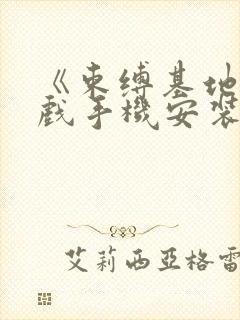 《束缚基地
戲手機安裝
艾莉西亞格雷